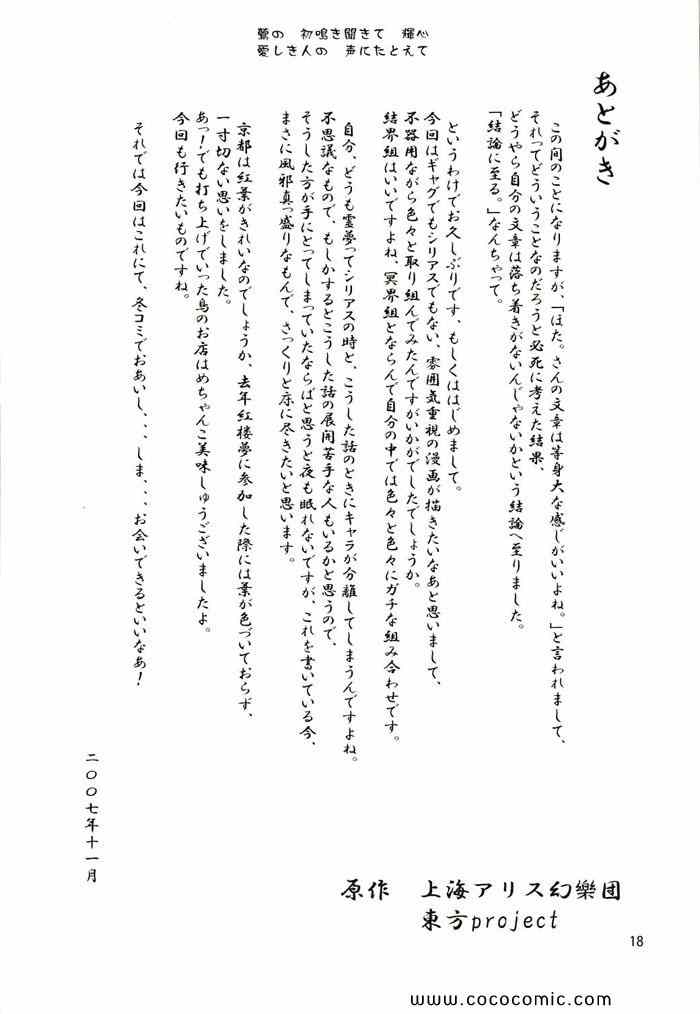 鶯の　初鳴き聞きて　輝心
愛しき人の　声にたとえて
あとがき
この間のことになりますが、「ほた。さんの文章は等身大な感じがいいよね。」と言われまして、
それってどういうことなのだろうと必死に考えた結果、
どうやら自分の文章は落ち着きがないんじゃないかという結論へ至りました。
「結論に至る。」なんちゃって。
というわけでお久しぶりです、もしくははじめまして。
今回はギャグでもシリアスでもない、雰囲気重視の漫画が描きたいなあと思いまして、
不器用ながら色々と取り組んでみたんですがいかがでしたでしょうか。
結界組はいいですよね、冥界組とならんで自分の中では色々と色々にガチな組み合わせです。
自分、どうも霊夢ってシリアスの時と、こうした話のときにキャラが分離してしまうんですよね。
不思議なもので、もしかするとこうした話の展開苦手な人もいるかと思うので、
そうした方が手にとってしまっていたならばと思うと夜も眠れないですが、これを書いている今、
まさに風邪真っ盛りなもんで、さっくりと床に尽きたいと思います。
京都は紅葉がきれいなのでしょうか、去年紅楼夢に参加した際には葉が色づいておらず、
一寸切ない思いをしました。
あっ！でも打ち上げでいった鳥のお店はめちゃんこ美味しゅうございましたよ。
今回も行きたいものですね。
それでは今回はこれにて、冬コミでおあいし、、、しま、、、お会いできるといいなあ！
二〇〇七年十一月
原作　上海アリス幻樂団
東方project
18
www.cococomic.com